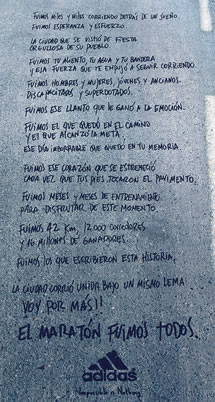 FUIMOS MILES Y MILES CORRIENDO DETRÁS DE UN SUEÑO.
FUIMOS ESPERANZA Y ESFUERZO.
LA CIUDAD QUE SE VISTIÓ DE FIESTA
ORGULLOSA DE SU PUEBLO.
FUIMOS TU ALIENTO, TU AGUA Y TU BANDERA
Y ESA FUERZA QUE TE EMPUJÓ A SEGUIR CORRIENDO.
FUIMOS HOMBRES Y MUJERES, JÓVENES Y ANCIANOS.
DISCAPACITADOS Y SUPERDOTADOS.
FUIMOS ESE LLANTO QUE LE GANÓ A LA EMOCIÓN.
FUIMOS EL QUE QUEDÓ EN EL CAMINO
Y EL QUE ALCANZÓ LA META.
ESE DÍA IMBORRABLE QUE QUEDÓ EN TU MEMORIA.
FUIMOS ESE CORAZÓN QUE SE ESTREMECIÓ
CADA VEZ QUE TUS PIES TOCARON EL PAVIMENTO.
FUIMOS MESES Y MESES DE ENTRENAMIENTO
PARA DISFRUTAR DE ESTE MOMENTO
FUIMOS 42 KM, 12000 CORREDORES
Y 16 MILLONES DE GANADORES.
FUIMOS LOS QUE ESCRIBIERON ESTA HISTORIA.
LA CIUDAD CORRIÓ UNIDA BAJO UN MISMO LEMA
VOY POR MÁS!!
EL MARATÓN FUIMOS TODOS.
adidas
Impossible is Nothing